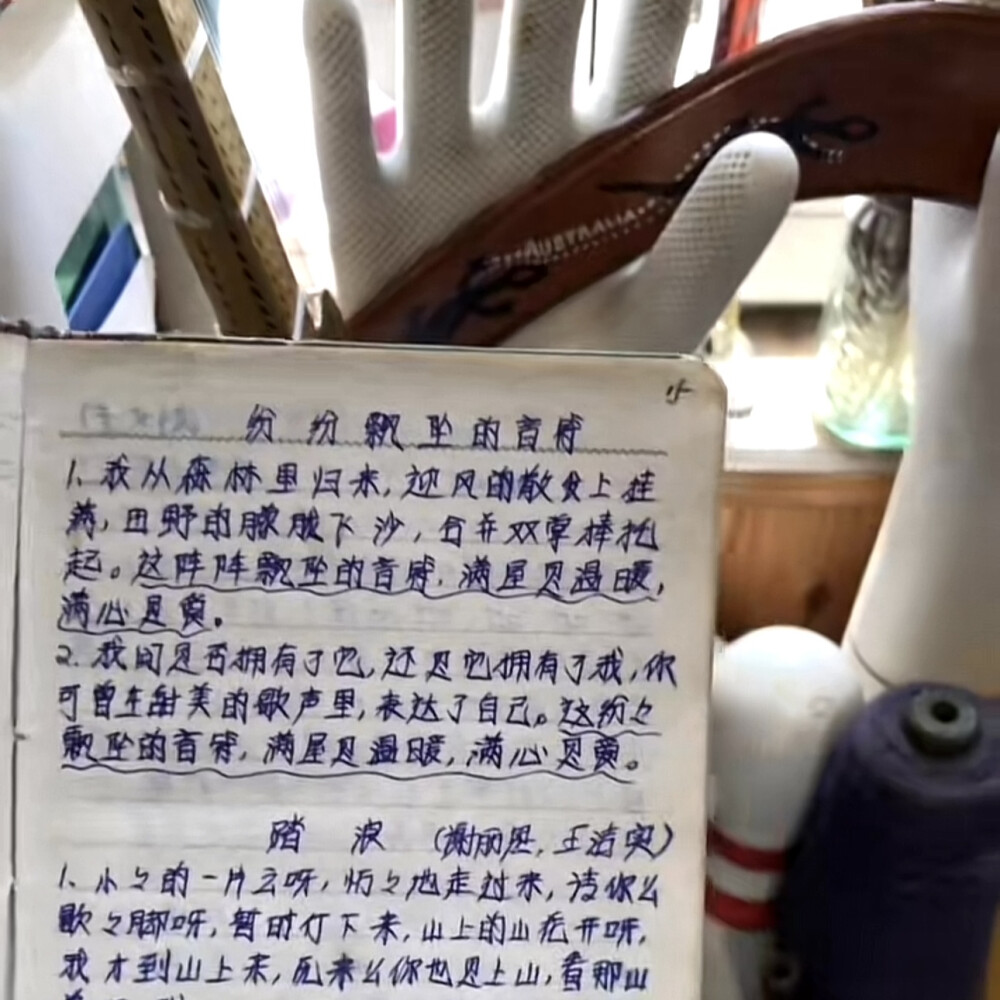 AUSTRALIA
15
纷纷飘坠的音符
1. 我从森林里归来,迎风的散发上挂
满,田野的朦胧下沙,合并双掌捧托
起。这阵阵飘坠的音符,满屋是温暖,
满心是爱。
2. 我问是否拥有了它,还是它拥有了我,你
可曾在甜美的歌声里,表达了自己。这纷々
飘坠的音符,满屋是温暖,满心是爱。
踏浪 (谢丽思,王洁实)
1. 小々的一片云呀,慢々地走过来,请你么
歇々脚呀,暂时停下来,山上的山花开呀,
我才到山上来,原来么你也是上山,看那山